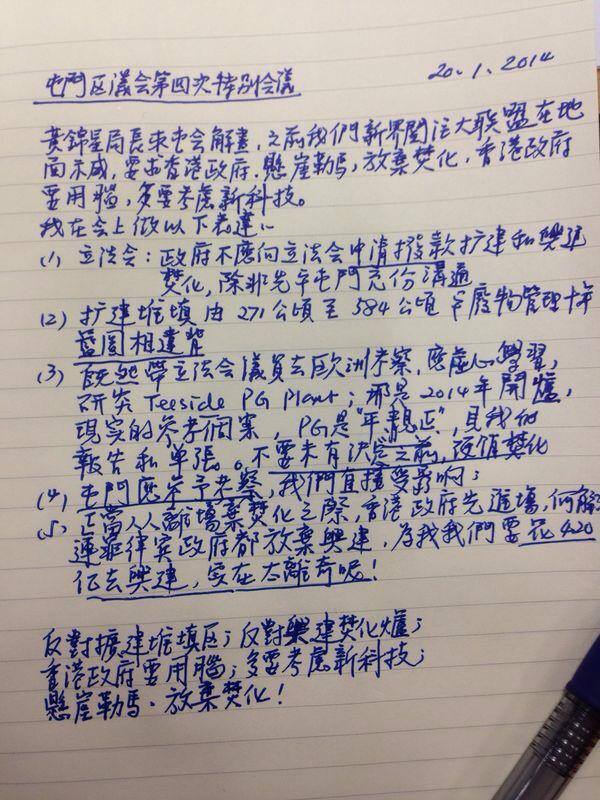 屯門区議会第四次特別会議 20.1.2014
黃錦星局長來屯会解畫,之前我們新界関注大联盟在地
面示威,要求香港政府.懸崖勒馬,放棄焚化,香港政府
要用腦,多要考慮新科技。
我在会上做以下
(1) 立法会:政府不應向立法会申請撥款扩建和興建
焚化,除非先与屯門充份溝通
(2) 扩建堆填由271公頃至584公頃与廢物管理十年
藍圖相違背
(3) 既然帶立法会議員去欧洲考察,應虚心學習,
研究Teeside PG Plant;那是2014年開爐,
現实的参考個案,PG是"平靚正",見我的
報告和單張。不要未有決定之前,硬銷焚化
(4) 屯門應给予考察,我們直接受影响;
(5) 正當人人離場棄焚化之際,香港政府先進場,何解
連菲律賓政府都放棄興建,為我我們要花420
亿去興建,实在太離奇呢!
反對擴建堆填区;反對興建焚化爐;
香港政府要用腦;多要考慮新科技;
懸崖勒馬.放棄焚化!